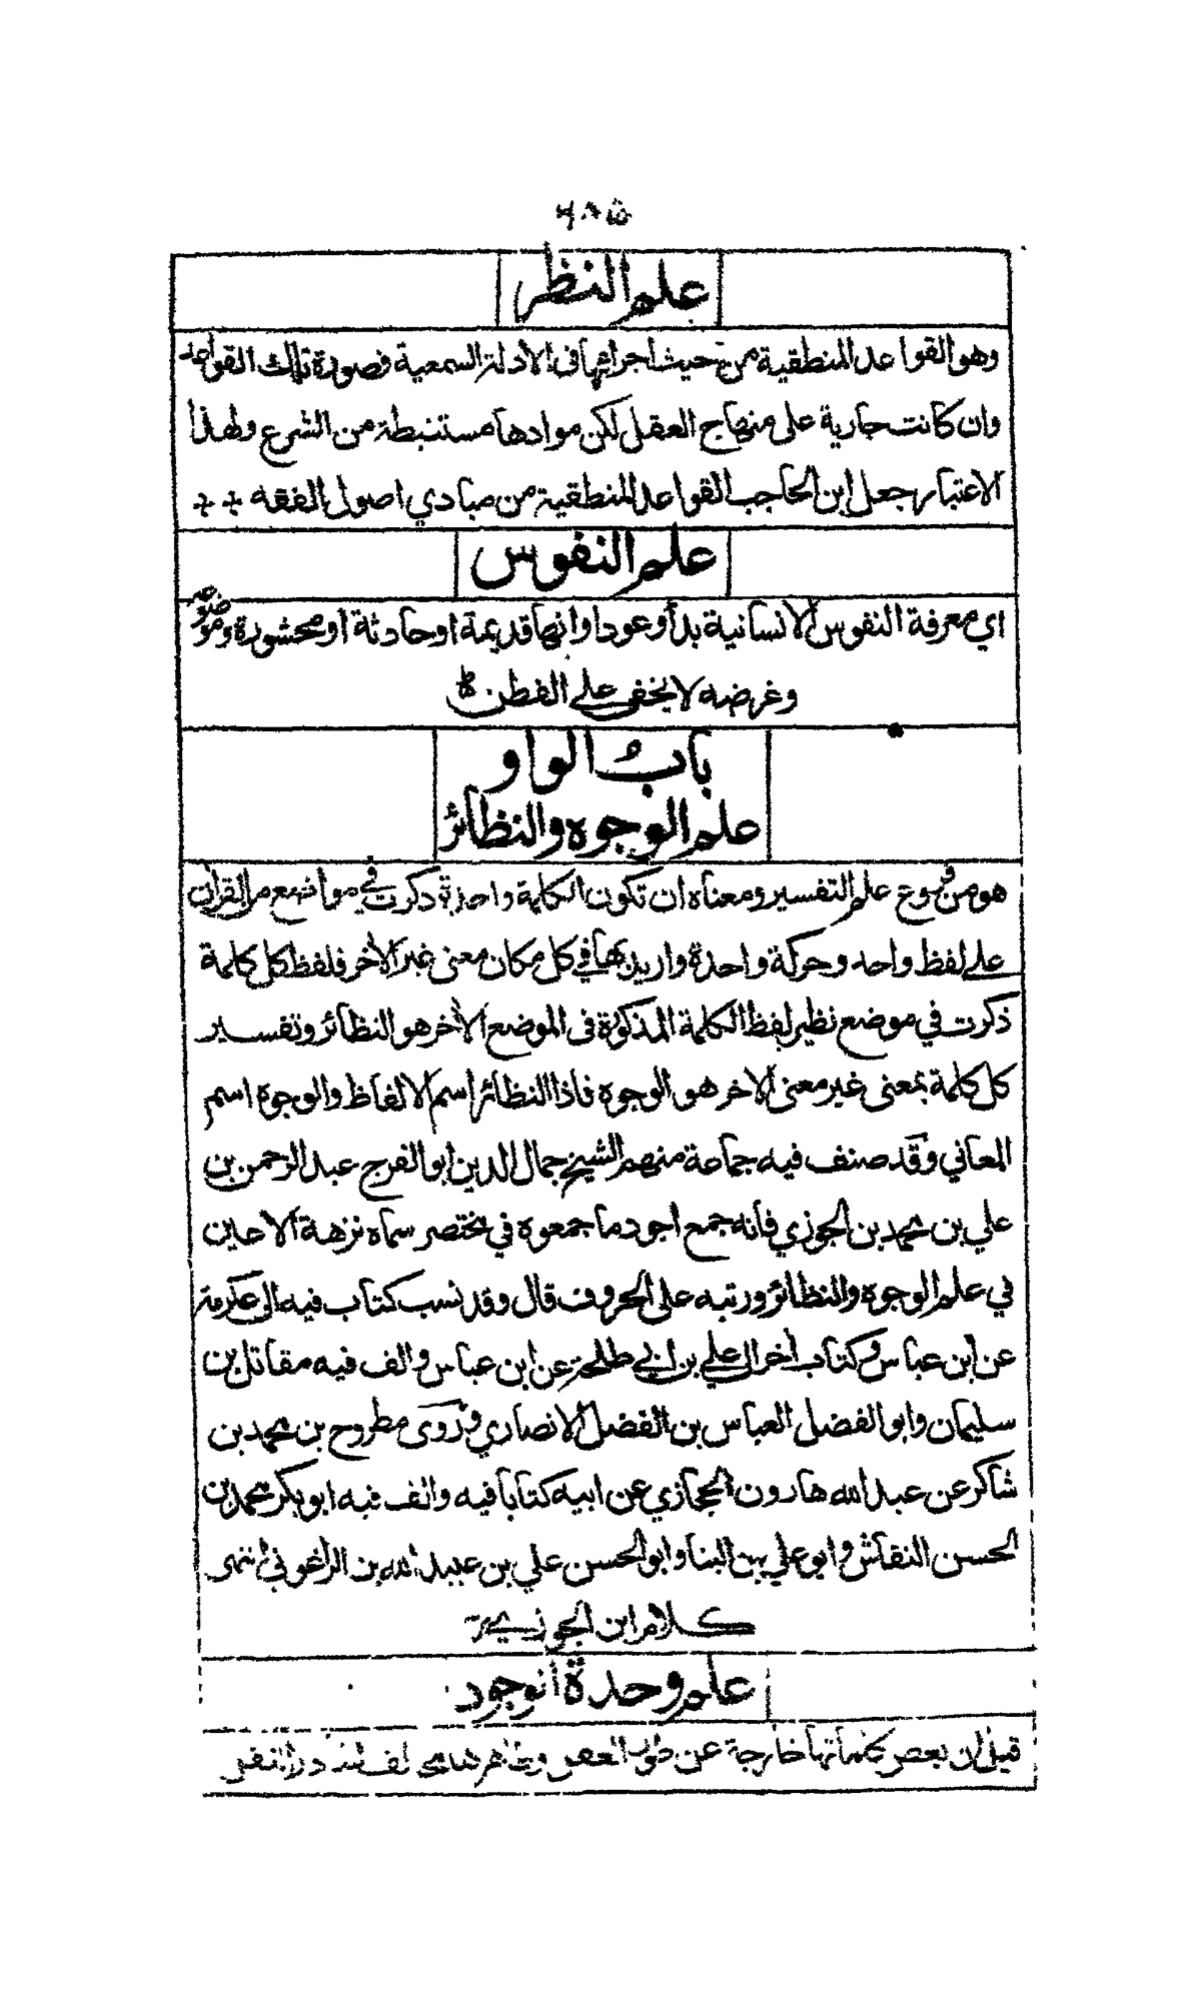 علم النظر
وهو القواعد المنطقية من حيث اجرائها في الادلة السمعية فصورة تلك القواعد
وان كانت جارية على منهاج العقل لكن موادها مستنبطة من الشرع ولهذا
الاعتبار جعل ابن الحاجب القواعد المنطقية من مبادي اصول الفقه
علم النفوس
اي معرفة النفوس الانسانية بدأ وعودا وانها قديمة او حادثة أو محشورة وموضوعه
وغرضه لا يخفى على الفطن
باب الواو
علم الوجوه والنظائر
هو من فروع علم التفسير ومعناه ان تكون الكلمة واحدة ذكرت في مواضع من القرآن
على لفظ واحد وحركة واحدة واريد بها في كل مكان معنى غير الآخر فلفظ كل كلمة
ذكرت في موضع نظير لفظ الكلمة المذكورة في الموضع الآخر هو النظائر وتفسير
كل كلمة بمعنى غير معنى الاخر هو الوجوه فاذا النظائر اسم الالفاظ والوجوه اسم
المعاني وقد صنف فيه جماعة منهم الشيخ جمال الدين ابو الفرج عبد الرحمن بن
علي بن محمد بن الجوزي فانه جمع اجود ما جمعوه في مختصر سماه نزهة الاعين
في علم الوجوه والنظائر ورتبه على الحروف قال وقد نسب كتاب فيه الى عكرمة
عن ابن عباس وكتاب آخر الى علي بن ابي طلحة عن ابن عباس والف فيه مقاتل بن
سليمان وابو الفضل العباس بن الفضل الانصاري وروى مطروح بن محمد بن
شاكر عن عبد الله هارون الحجازي عن ابيه كتابا فيه والف فيه ابو بكر محمد بن
الحسن النقاش وابو علي بن البنا وابو الحسن علي بن عبيد الله بن الزاغوني انتهى
كلام ابن الجوزي
علم وحدة الوجود
قيل ان بعض خارجة عن طور العقل